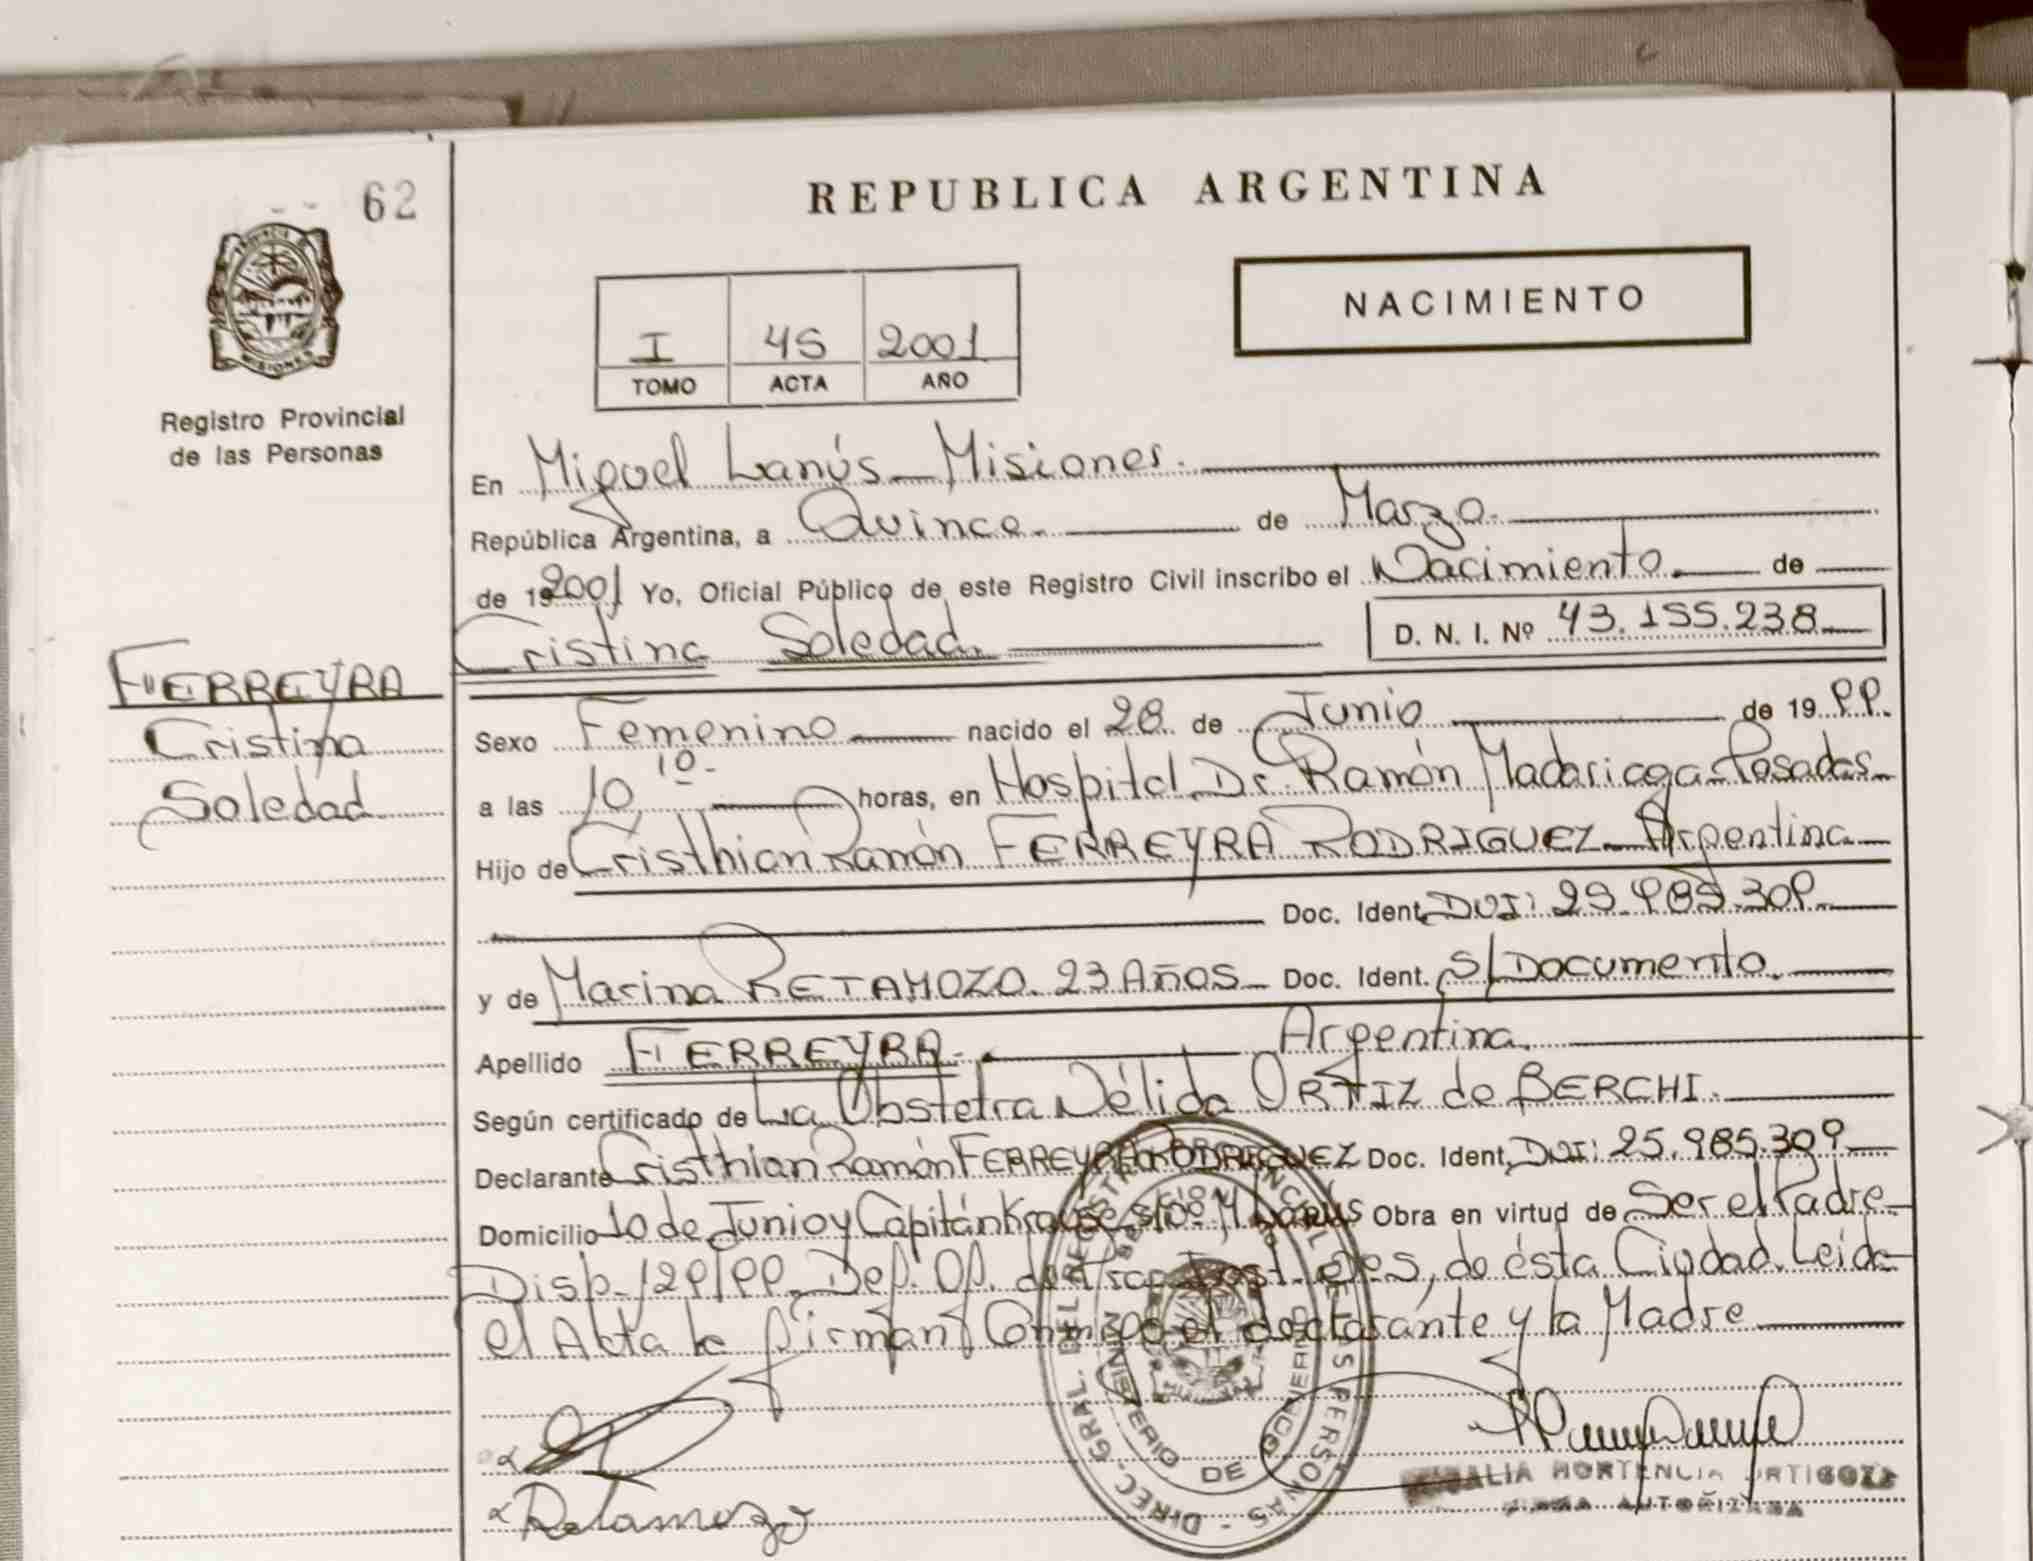 62
REPUBLICA ARGENTINA
NACIMIENTO
I 45 2001
TOMO ACTA AÑO
Registro Provincial
de las Personas
En Miguel Lanús - Misiones.
República Argentina, a Quince de Marzo.
de 19 2001 Yo, Oficial Público de este Registro Civil inscribo el Nacimiento. de
Cristina Soledad. D. N. I. Nº 43.155.238
FERREYRA
Cristina
Soledad
Sexo Femenino nacido el 28 de Junio de 19 99.
a las 10 10 horas, en Hospital Dr. Ramón Madariaga - Posadas
Hijo de Cristhian Ramón FERREYRA RODRIGUEZ - Argentina
Doc. Ident. DNI: 25.985.309
y de Marina RETAMOZO. 23 Años - Doc. Ident. S/Documento.
Apellido FERREYRA. Argentina.
Según certificado de La Obstetra Nélida ORTIZ de BERCHI.
Declarante Cristhian Ramón FERREYRA RODRIGUEZ Doc. Ident. DNI: 25.985.309
Domicilio 10 de Junio y Capitán Krause s/nº M. Lanús Obra en virtud de Ser el Padre
Disp. 129/99 Dep. Op. de ésta Ciudad. Leída
el Acta la firman Conmigo el declarante y la Madre
Retamozo
DIREC. GRAL. DEL REGISTRO PROVINCIAL DE LAS PERSONAS
MINISTERIO DE GOBIERNO
HORTENCIA
FIRMA AUTORIZADA